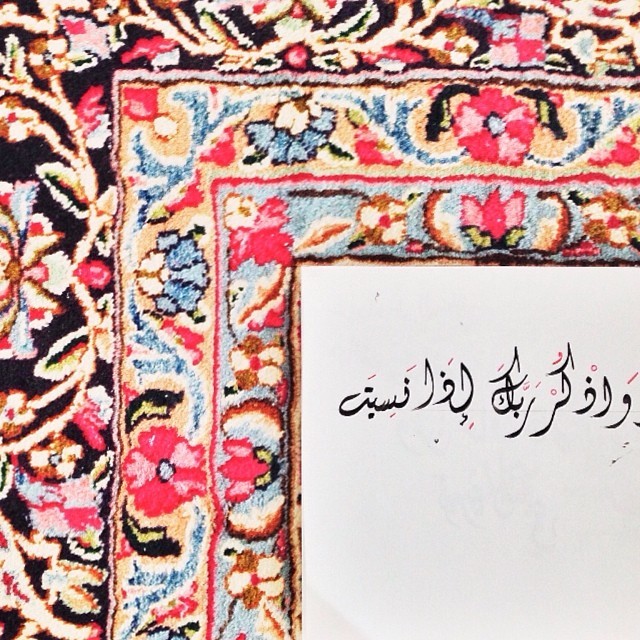 وَاذْكُرْ رَبَّكَ إِذَا نَسِيتَ